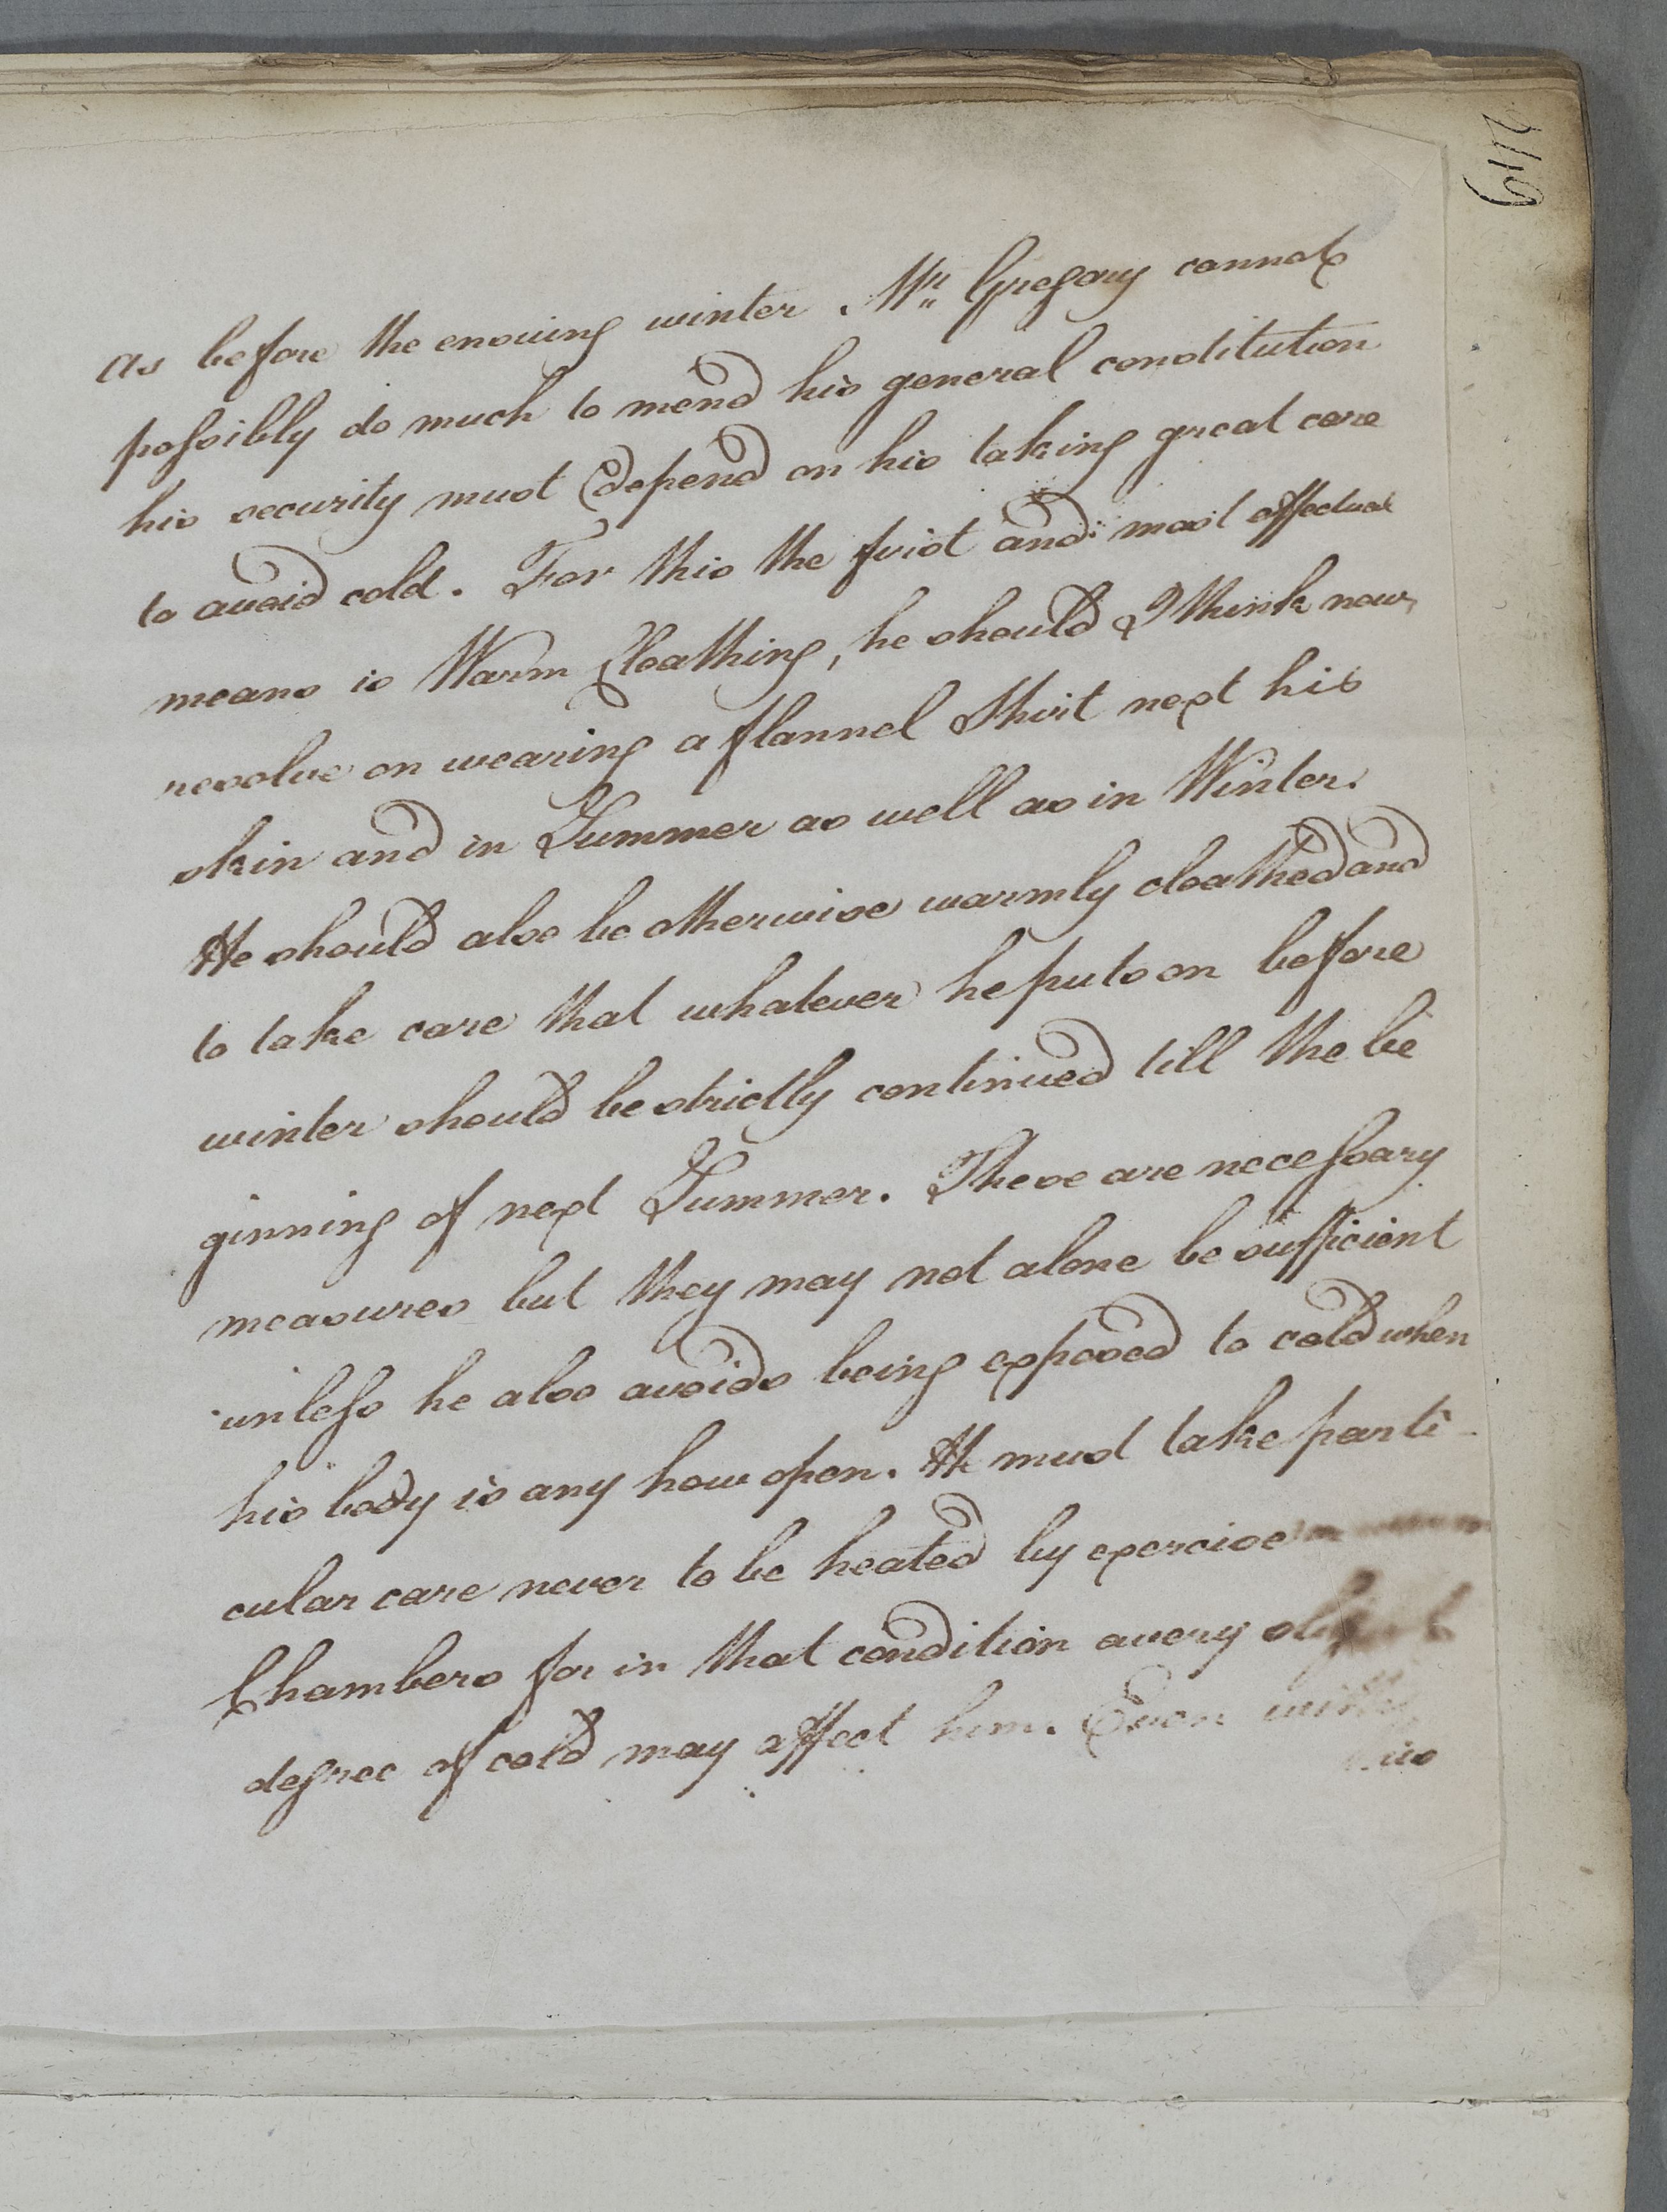 249
As before the ensuing winter. Mr. Gregory cannot
possibly do much to mend his general constitution
his security must depend on his taking great care
to avoid cold. For this the first and most effectual
means is Warm Cloathing, he should I think now
resolve on wearing a flannel Shirt next his
skin and in Summer as well as in Winter.
He should also be otherwise warmly cloathed and
to take care that whatever he puts on before
winter should be strictly continued till the be
ginning of next Summer. These are necessary
measures but they may not alone be sufficient
unless he also avoids being exposed to cold when
his body is any how open. He must take parti-
cular care never to be heated by exercise
Chambers for in that condition a very slight
degree of cold may affect him. Even with